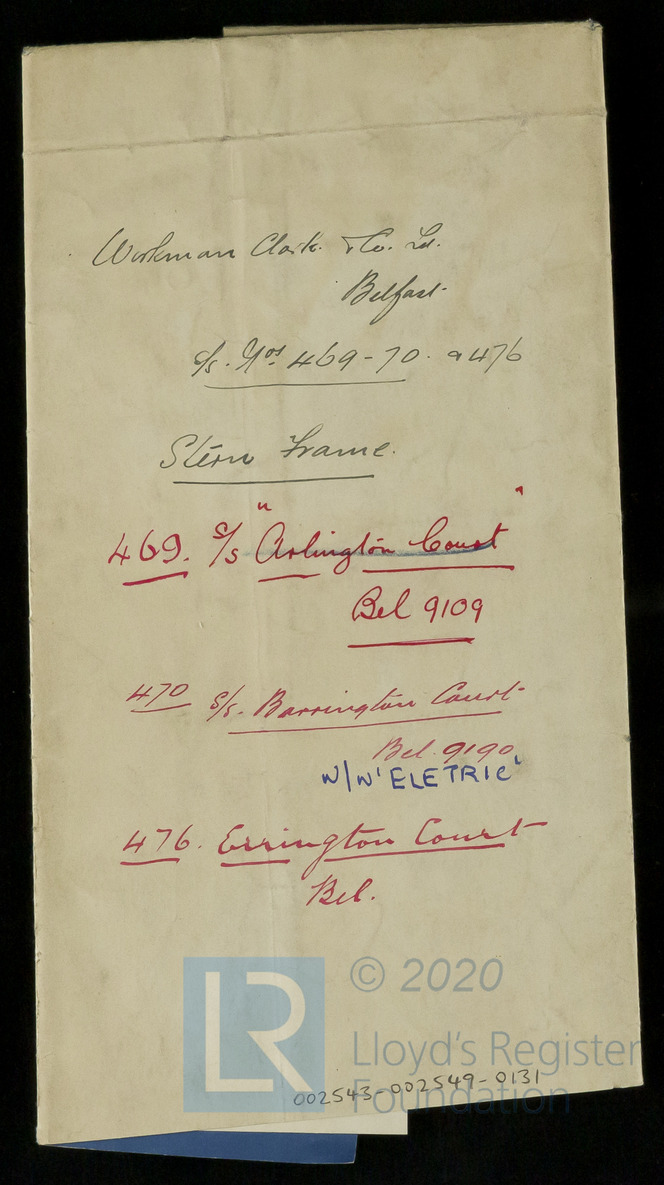 Workman Clark. & Co. Ld.
Belfast.
S/s. Nos. 469-70. & 476
Stern Frame.
469. S/s "Arlington Court"
Bel 9109
470 S/s. Barrington Court
Bel. 9190
N/N 'ELETRIC'
476. Errington Court
Bel.
LR © 2020
Lloyd's Register
Foundation
002543-002549-0131